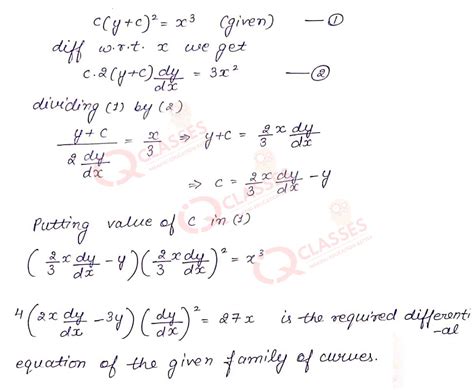 c(y+c)² = x³ (given) — ①
diff w.r.t. x we get
c.2(y+c) dy/dx = 3x² — ②
dividing (1) by (2)
(y+c)/(2 dy/dx) = x/3 ⇒ y+c = 2/3 x dy/dx
⇒ c = 2/3 x dy/dx - y
Putting value of c in (1)
(2/3 x dy/dx - y)(2/3 x dy/dx)² = x³
4(2x dy/dx - 3y)(dy/dx)² = 27x is the required differenti
-al
equation of the given family of curves.
CLASSES
CLASSES
CLASSES